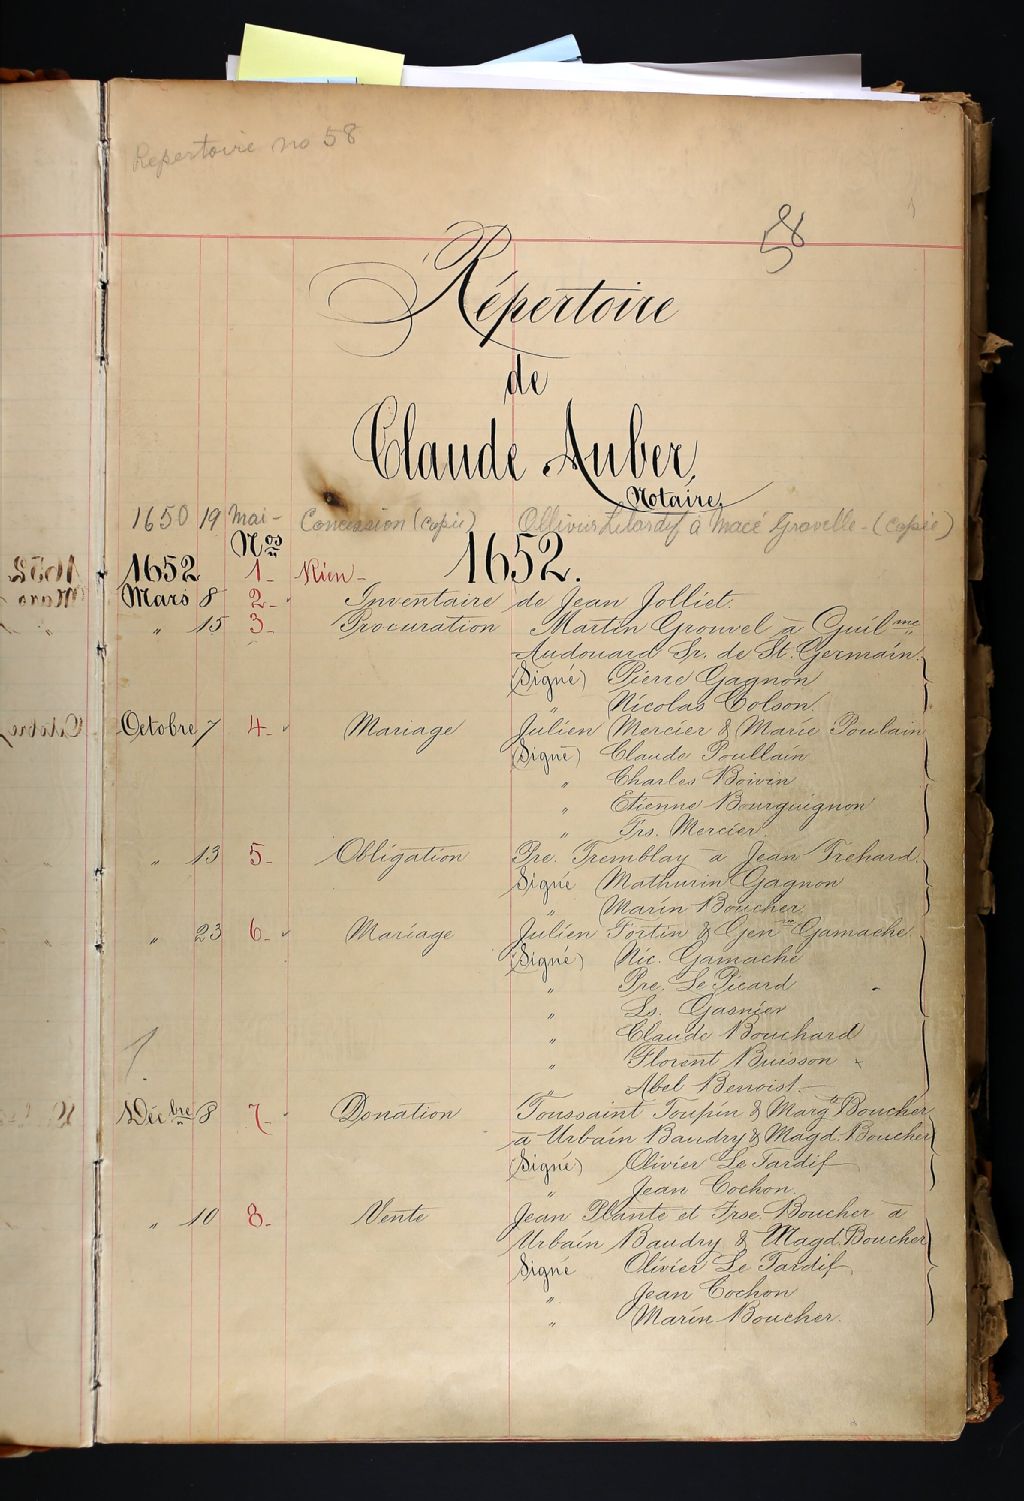 Repertoire no 58
58
Répertoire
de
Claude Auber,
Notaire,
1650 19 Mai - Concession (copie) Ollivier Letardif à Macé Gravelle - (copie)
Nos
1652 1- Rien - 1652.
Mars 8 2- Inventaire de Jean Jolliet.
" 15 3- Procuration Martin Grouvel à Guilme
Audouard Sr. de St. Germain.
(Signé) Pierre Gagnon
" Nicolas Colson.
Octobre 7 4- Mariage Julien Mercier & Marie Poulain
(Signé) Claude Poullain
" Charles Boivin
" Etienne Bourguignon
" Frs. Mercier.
" 13 5- Obligation Pre. Tremblay à Jean Frehard.
Signé Mathurin Gagnon
" Marin Boucher.
" 23 6- Mariage Julien Fortin & Genve Gamache
(Signé) Nic. Gamache
" Pre. Le Picard
" Ls. Gasnier
" Claude Bouchard
" Florent Buisson
" Abel Benoist -
Décbre 8 7- Donation Toussaint Toupin & Margte Boucher
à Urbain Baudry & Magd. Boucher
(Signé) Olivier Le Tardif
" Jean Cochon.
" 10 8- Vente Jean Plante et Frse. Boucher à
Urbain Baudry & Magd. Boucher
Signé Olivier Le Tardif
" Jean Cochon
" Marin Boucher.